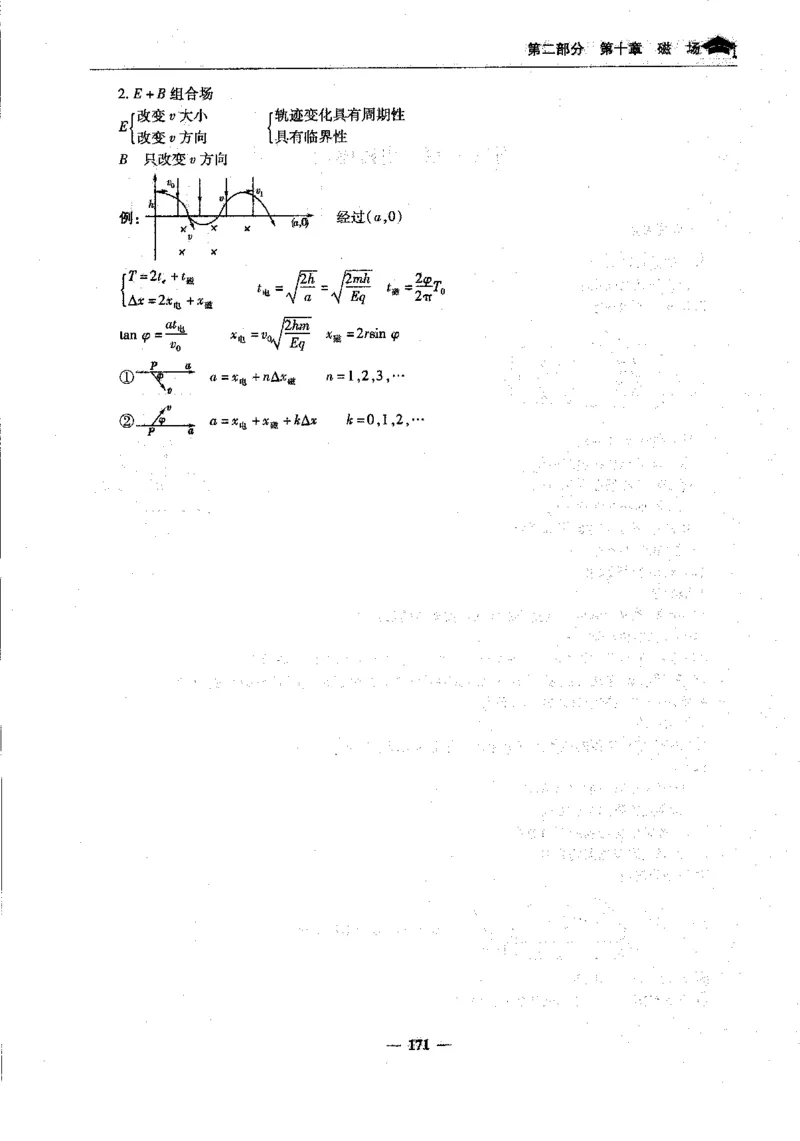 第二部分 第十章 磁 场
2. E + B 组合场
E{改变 v 大小 {轨迹变化具有周期性
改变 v 方向 具有临界性
B 只改变 v 方向
v₀ v v₁
h
例: (a,0) 经过(a,0)
× × ×
v
× ×
{T = 2tₑ + t磁 t电 = √(2h/a) = √(2mh/Eq) t磁 = (2φ/2π)T₀
Δx = 2x电 + x磁
tan φ = at电/v₀ x电 = v₀√(2hm/Eq) x磁 = 2rsin φ
① P a φ v a = x电 + nΔx磁 n = 1,2,3,…
② v φ P a a = x电 + x磁 + kΔx k = 0,1,2,…
— 171 —